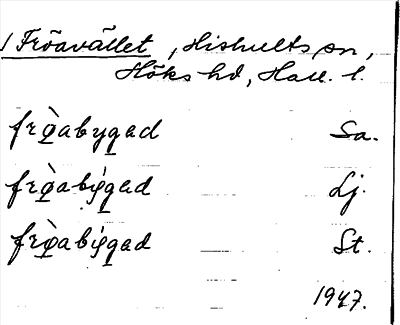 / Fröavället, Hishults sn,
Höks hd, Hall. l.
frǫ̀abygạd Sa.
frǫ̀abýgạd Lj.
frǫ̀abýgạd St.
1947.